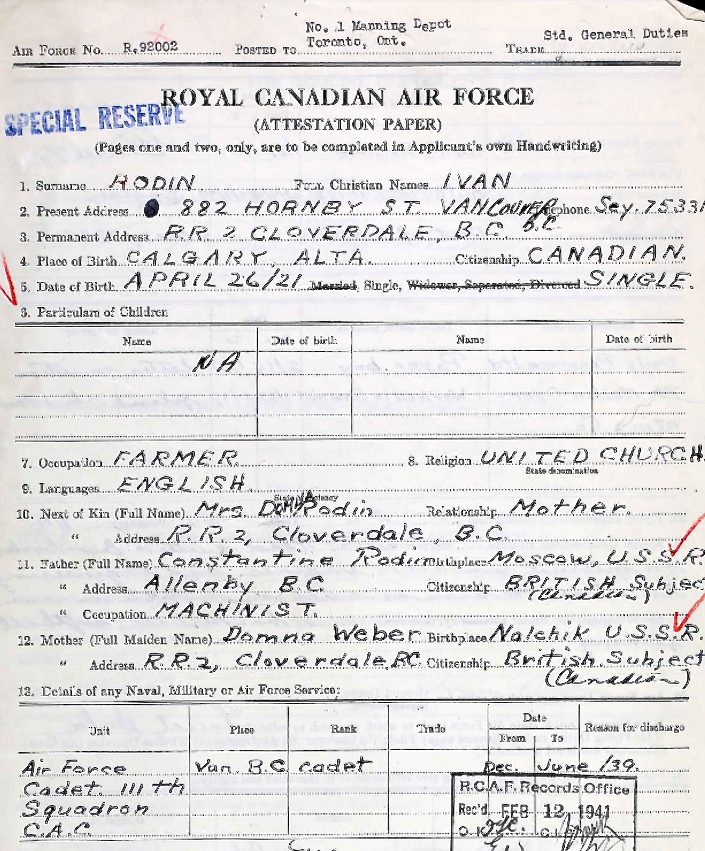 No. 1 Manning Depot
AIR FORCE NO. R.92002 POSTED TO Toronto, Ont. TRADE Std. General Duties
ROYAL CANADIAN AIR FORCE
SPECIAL RESERVE
(ATTESTATION PAPER)
(Pages one and two, only, are to be completed in Applicant's own Handwriting)
1. Surname RODIN Full Christian Names IVAN
2. Present Address 882 HORNBY ST. VANCOUVER B.C. Telephone Sey. 7533
3. Permanent Address R.R. 2 CLOVERDALE, B.C.
4. Place of Birth CALGARY, ALTA. Citizenship CANADIAN.
5. Date of Birth APRIL 26/21 Married, Single, Widower, Separated, Divorced SINGLE.
6. Particulars of Children
Name Date of birth Name Date of birth
NA
7. Occupation FARMER. 8. Religion UNITED CHURCH.
State denomination
9. Languages ENGLISH
10. Next of Kin (Full Name) Mrs Domna Rodin Relationship Mother.
" Address R.R. 2, Cloverdale, B.C.
11. Father (Full Name) Constantine Rodin Birthplace Moscow, U.S.S.R.
" Address Allenby B.C. Citizenship BRITISH Subject
(Canadian)
" Occupation MACHINIST.
12. Mother (Full Maiden Name) Domna Weber Birthplace Nalchik U.S.S.R.
" Address R.R.2, Cloverdale BC Citizenship British Subject
(Canadian)
13. Details of any Naval, Military or Air Force Service:
Unit Place Rank Trade Date Reason for discharge
From To
Air Force Van. B.C. cadet Dec. June /39.
Cadet 111 th
Squadron
C.A.C.
R.C.A.F. Records Office
Rec'd. FEB 12 1941
O.K.